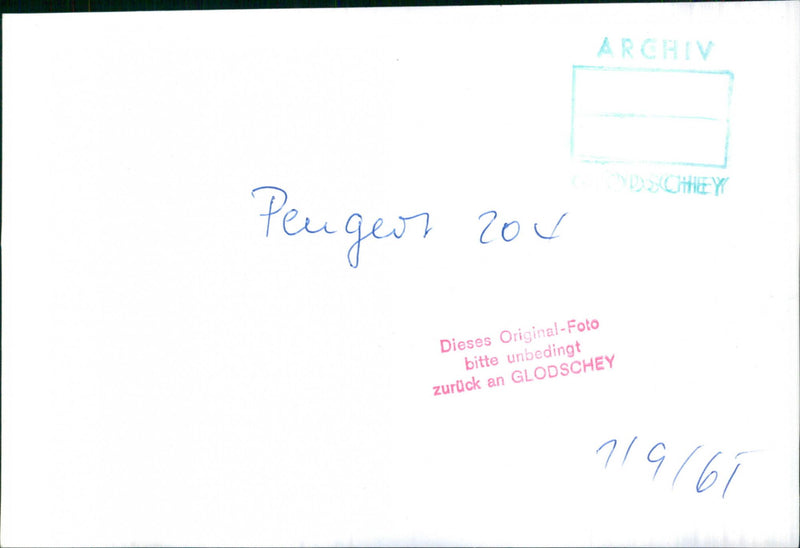 ARCHIV
GLODSCHEY
Peugeot 204
Dieses Original-Foto
bitte unbedingt
zurück an GLODSCHEY
119/65